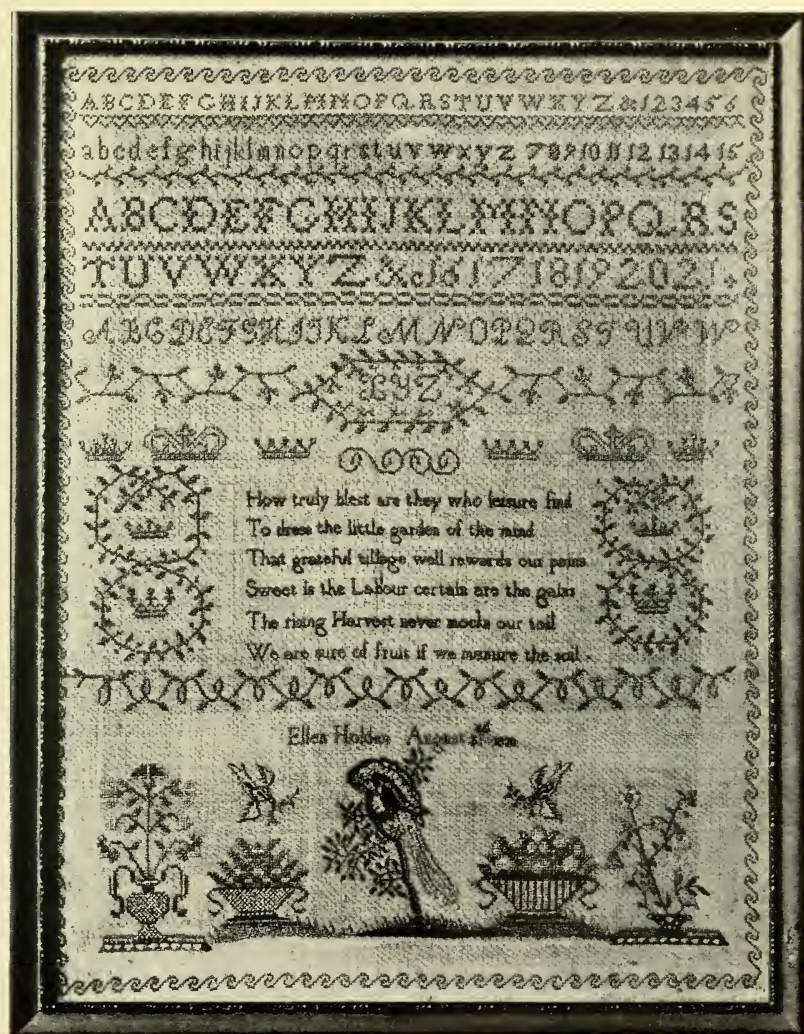 ABCDEFGHIJKLMNOPQRSTUVWXYZ&123456
abcdefghijklmnopqrstuvwxyz 789101112131415
ABCDEFGHIJKLMNOPQRS
TUVWXYZ&c161718192021
ABCDEFGHIJKLMNOPQRSTUVW
XYZ
How truly blest are they who leisure find
To dress the little garden of the mind
That grateful tillage well rewards our pains
Sweet is the Labour certain are the gains
The rising Harvest never mocks our toil
We are sure of fruit if we manure the soil.
Ellen Holden August